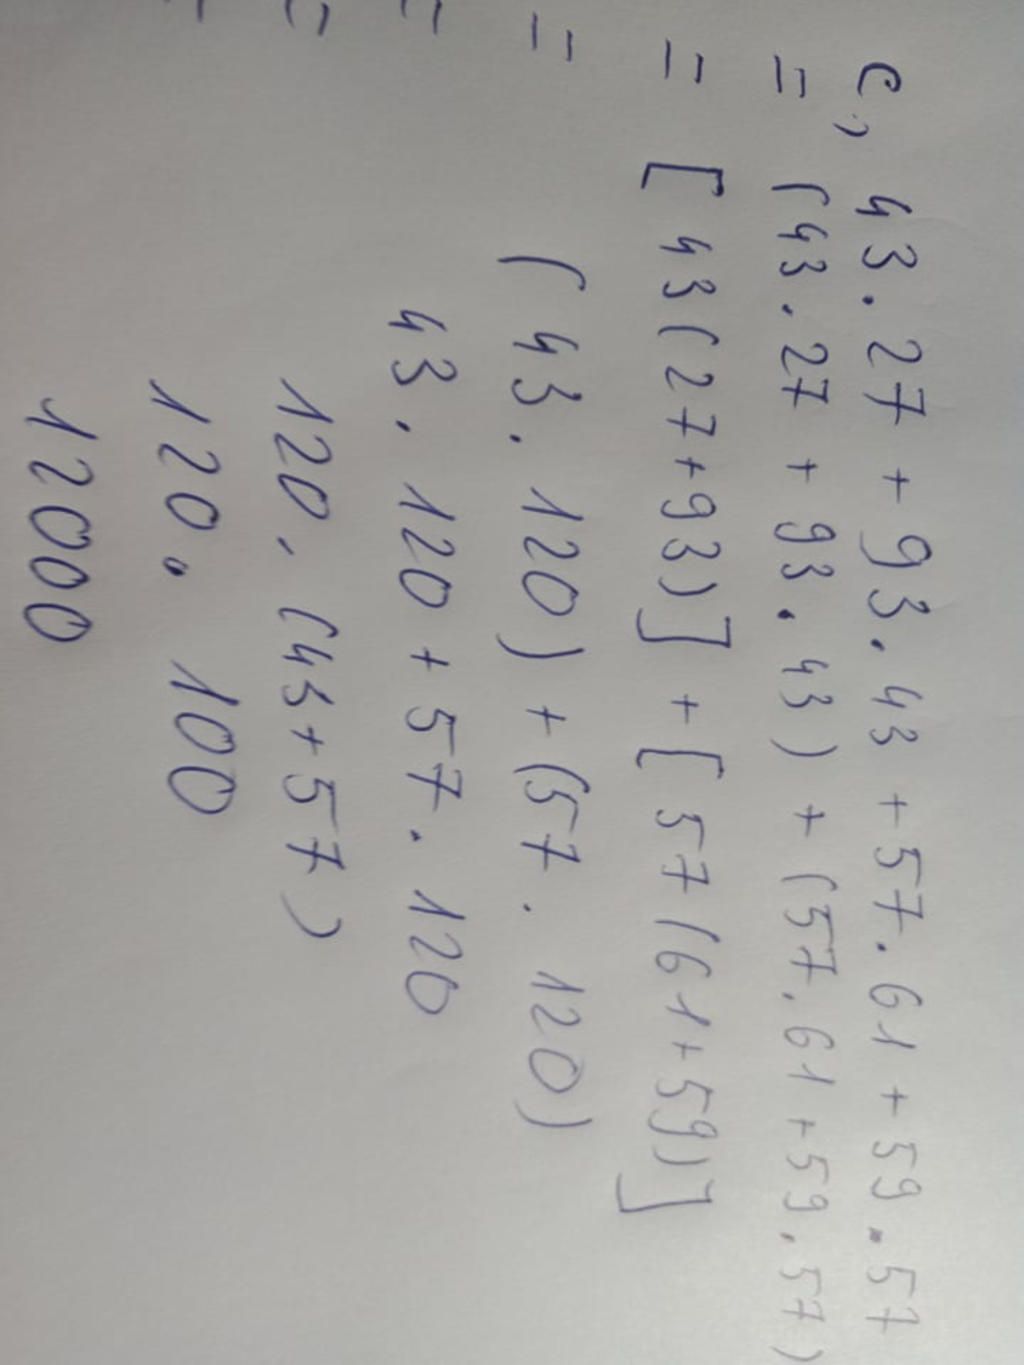 c, 43.27 + 93.43 + 57.61 + 59.57
= (43.27 + 93.43) + (57.61 + 59.57)
= [43(27+93)] + [57(61+59)]
= (43.120) + (57.120)
= 43.120 + 57.120
= 120.(43+57)
= 120.100
12000